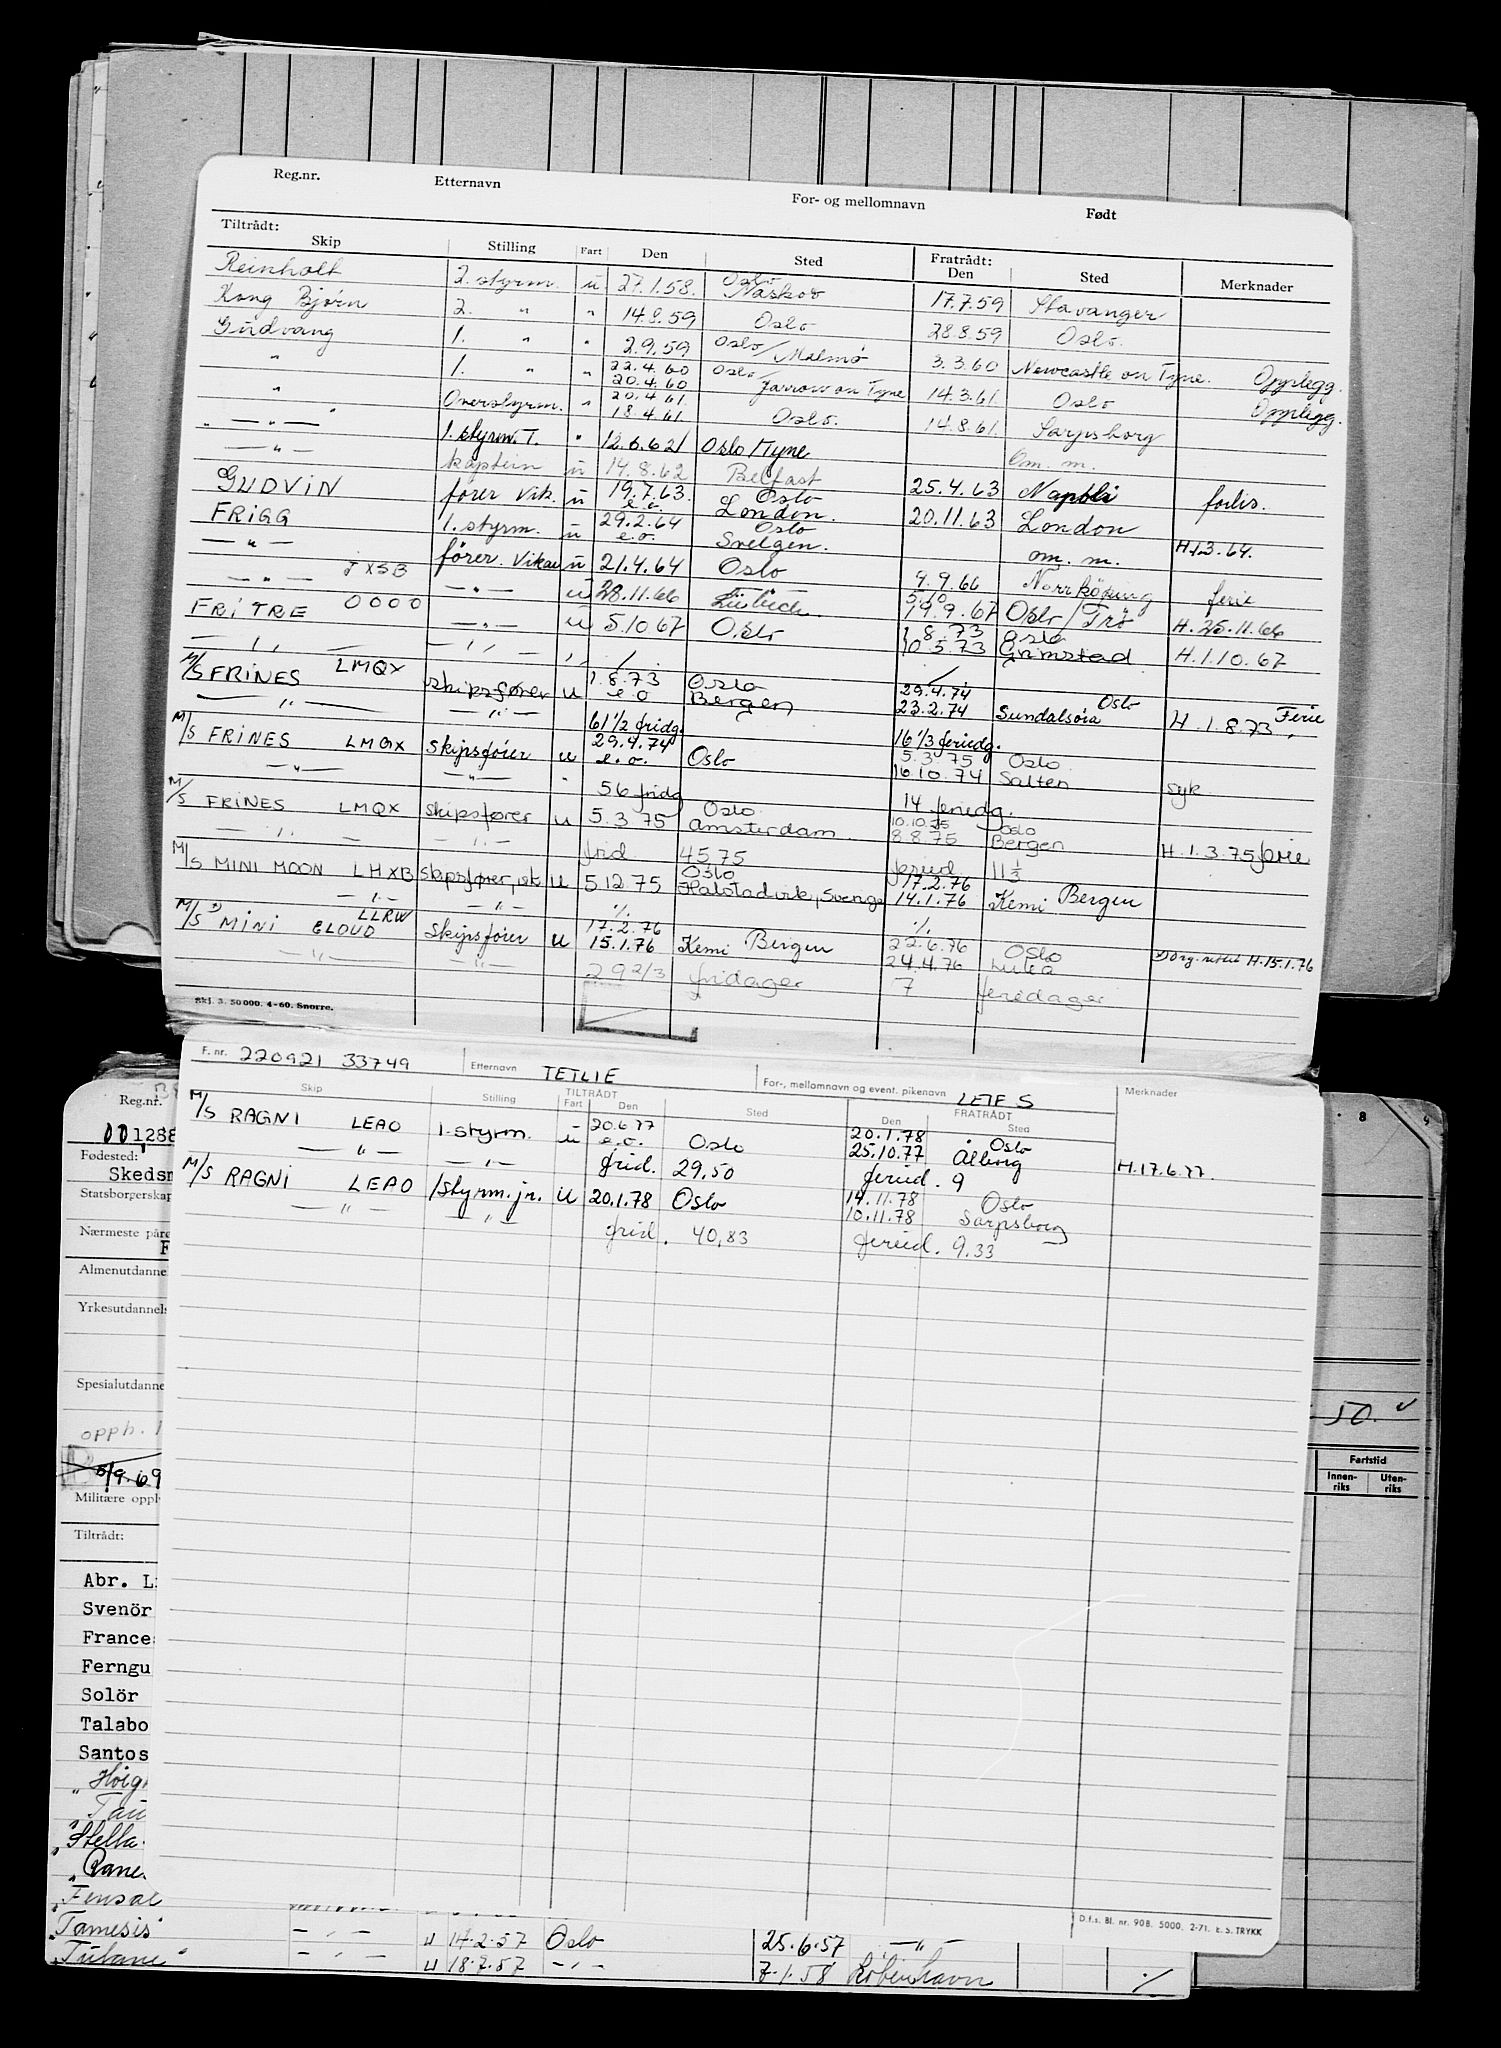 Reg.nr. Etternavn For- og mellomnavn Født
Tiltrådt: Skip Stilling Fart Den Sted Fratrådt: Den Sted Merknader
Reinholt 2. styrm. u 27.1.58. Oslo Naskov 17.7.59 Stavanger
Kong Bjørn 2. " " 14.8.59 Oslo 28.8.59 Oslo.
Gudvang 1. " " 2.9.59 Oslo/Malmö 3.3.60 Newcastle on Tyne. Opplegg.
" 1. " " 22.4.60 20.4.60 Oslo/Jarrow on Tyne 14.3.61. Oslo Opplegg.
" Overstyrm. " 20.4.61. 18.4.61. Oslo. 14.8.61. Sarpsborg
" — " — 1. styrm. T. " 12.6.62 Oslo/Tyne Om. m.
— " — kaptein u 14.8.62 Belfast 25.4.63 Napoli forlis.
GUDVIN fører vik. u 19.7.63. e.o. Oslo London. 20.11.63 London
FRIGG 1. styrm. u 29.2.64 e.o. Oslo Svelgen. om. m. H.1.3.64.
— " — fører. Vikar u 21.4.64 Oslo 9.9.66 Norrköping ferie
— " — JXSB — " — u 28.11.66 Lübeck 5.10 19.9.67 Oslo/Trö H.25.11.66
FRITRE OOOO — " — u 5.10.67 Oslo 1.8.73 10.5.73 Oslo Grimstad H.1.10.67
— " —
M/S FRINES LMQX skipsfører u 1.8.73 e.o Oslo Bergen 29.4.74 23.2.74 Oslo Sundalsöra H.1.8.73, Ferie
— " — — " — 61 1/2 fridg. 16 1/3 feriedg.
M/S FRINES LMQX skipsfører u 29.4.74 e.o. Oslo 5.3.75 16.10.74 Oslo Salten syk
— " — — " — " 56 fridg 14 feriedg.
M/S FRINES LMQX skipsfører u 5.3.75 Oslo Amsterdam 10.10.75 8.8.75 Oslo Bergen H.1.3.75 ferie
— " — — " — frid. 45.75 feried 11 1/3
M/S MINI MOON LHXB skipsfører, vik u 5.12.75 Oslo Halstadvik, Sverige 17.2.76 14.1.76 Kemi Bergen
— " — — " — ./. ./.
M/S 1) MINI CLOUD LLRW skipsfører u 17.2.76 15.1.76 Kemi Bergen 22.6.76 24.4.76 Oslo Luleå H.15.1.76
— " — — " — 29 2/3 fridager 7 feriedager
Skj. 3. 50 000. 4-60. Snorre.
F. nr. 220921 33749 Etternavn TETLIE For-, mellomnavn og event. pikenavn LEIF S
Skip Stilling TILTRÅDT Fart Den Sted Den FRATRÅDT Sted Merknader
M/S RAGNI LEAO 1. styrm. u 20.6.77 e.o. Oslo 20.1.78 25.10.77 Oslo Ålborg H.17.6.77.
— " — — " — frid. 29,50 feried. 9
M/S RAGNI LEAO 1 styrm. jr. u 20.1.78 Oslo 14.11.78 10.11.78 Oslo Sarpsborg
— " — — " — frid. 40,83 feried. 9.33
D.f.s. Bl. nr. 908. 5000. 2-71. E. S. TRYKK
Reg.nr.
001288
Fødested:
Skedsm
Statsborgerskap
Nærmeste pårø
F
Almenutdanne
Yrkesutdannels
Spesialutdanne
opph. 1
5/9.69
Militære oppl
Tiltrådt:
Abr. L
Svenör
Frances
Ferngu
Solör
Talabo
Santos
" Höig
" Tau
" Stella
" Rane
" Fensal
" Tamesis — " — u 14.2.57 Oslo 25.6.57 — " —
" Tubane — " — u 18.7.57 — " — 7.1.58 København ./.
8
50.
Fartstid
Innen- riks Uten- riks